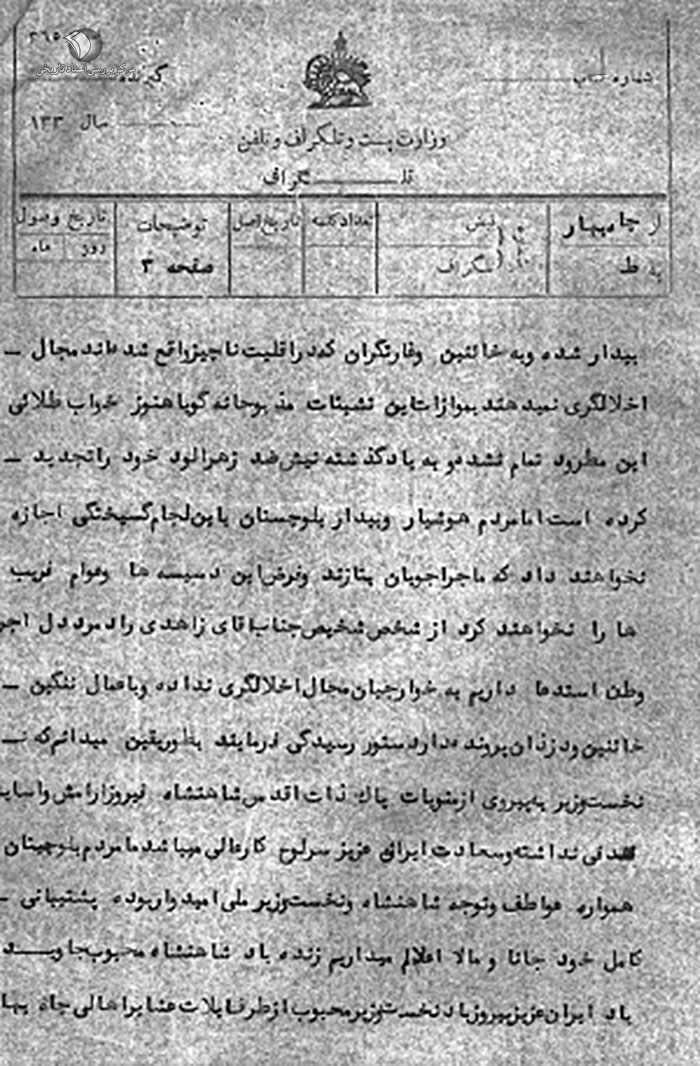 ۲۶۵
مرکز بررسی اسناد تاریخی
شماره کتاب
گیرنده
سال ۱۳۳
وزارت پست و تلگراف و تلفن
تلگراف
از چاه بهار
به ط
قبض
تلگراف
تعداد کلمه
تاریخ اصل
توضیحات
صفحه ۲
تاریخ وصول
روز ماه
بیدار شده و به خائنین وغارتگران که در اقلیت ناچیز واقع شده اند مجال ـ
اخلالگری نمیدهند بموازات این تشبثات مذبوحانه گویا هنوز خواب طلائی
این مطرود تمام نشده و به یاد گذشته نیش ضد زهرالود خود را تجدید ـ
کرده است اما مردم هوشیار وبیدار بلوچستان باین لجام گسیختگی اجازه
نخواهند داد که ماجراجویان بتازند وفرض این دسیسه ها وعوام فریب
ها را نخواهند کرد از شخص شخیص جناب اقای زاهدی راد مرد دل
وطن استدعا داریم به خوارجیان مجال اخلالگری نداده وباعمال ننگین ـ
خائنین ودزدان پرونده دار دستور رسیدگی فرمایند بطور یقین میدانم که
نخست وزیر به پیروی از منویات پاک ذات اقدس شاهنشاه فیروز ارامش واسایش
نداشته وسعادت ایران عزیز سرلوح کارعالی میباشد ما مردم بلوچستان
همواره عواطف وتوجه شاهنشاه ونخست وزیر ملی امیدوار بوده پشتیبانی ـ
کامل خود جانا و مالا اعلام میداریم زنده باد شاهنشاه محبوب جاوید
باد ایران عزیز پیروز باد نخست وزیر محبوب از طرف ایلات عشایر اهالی چاه بهار